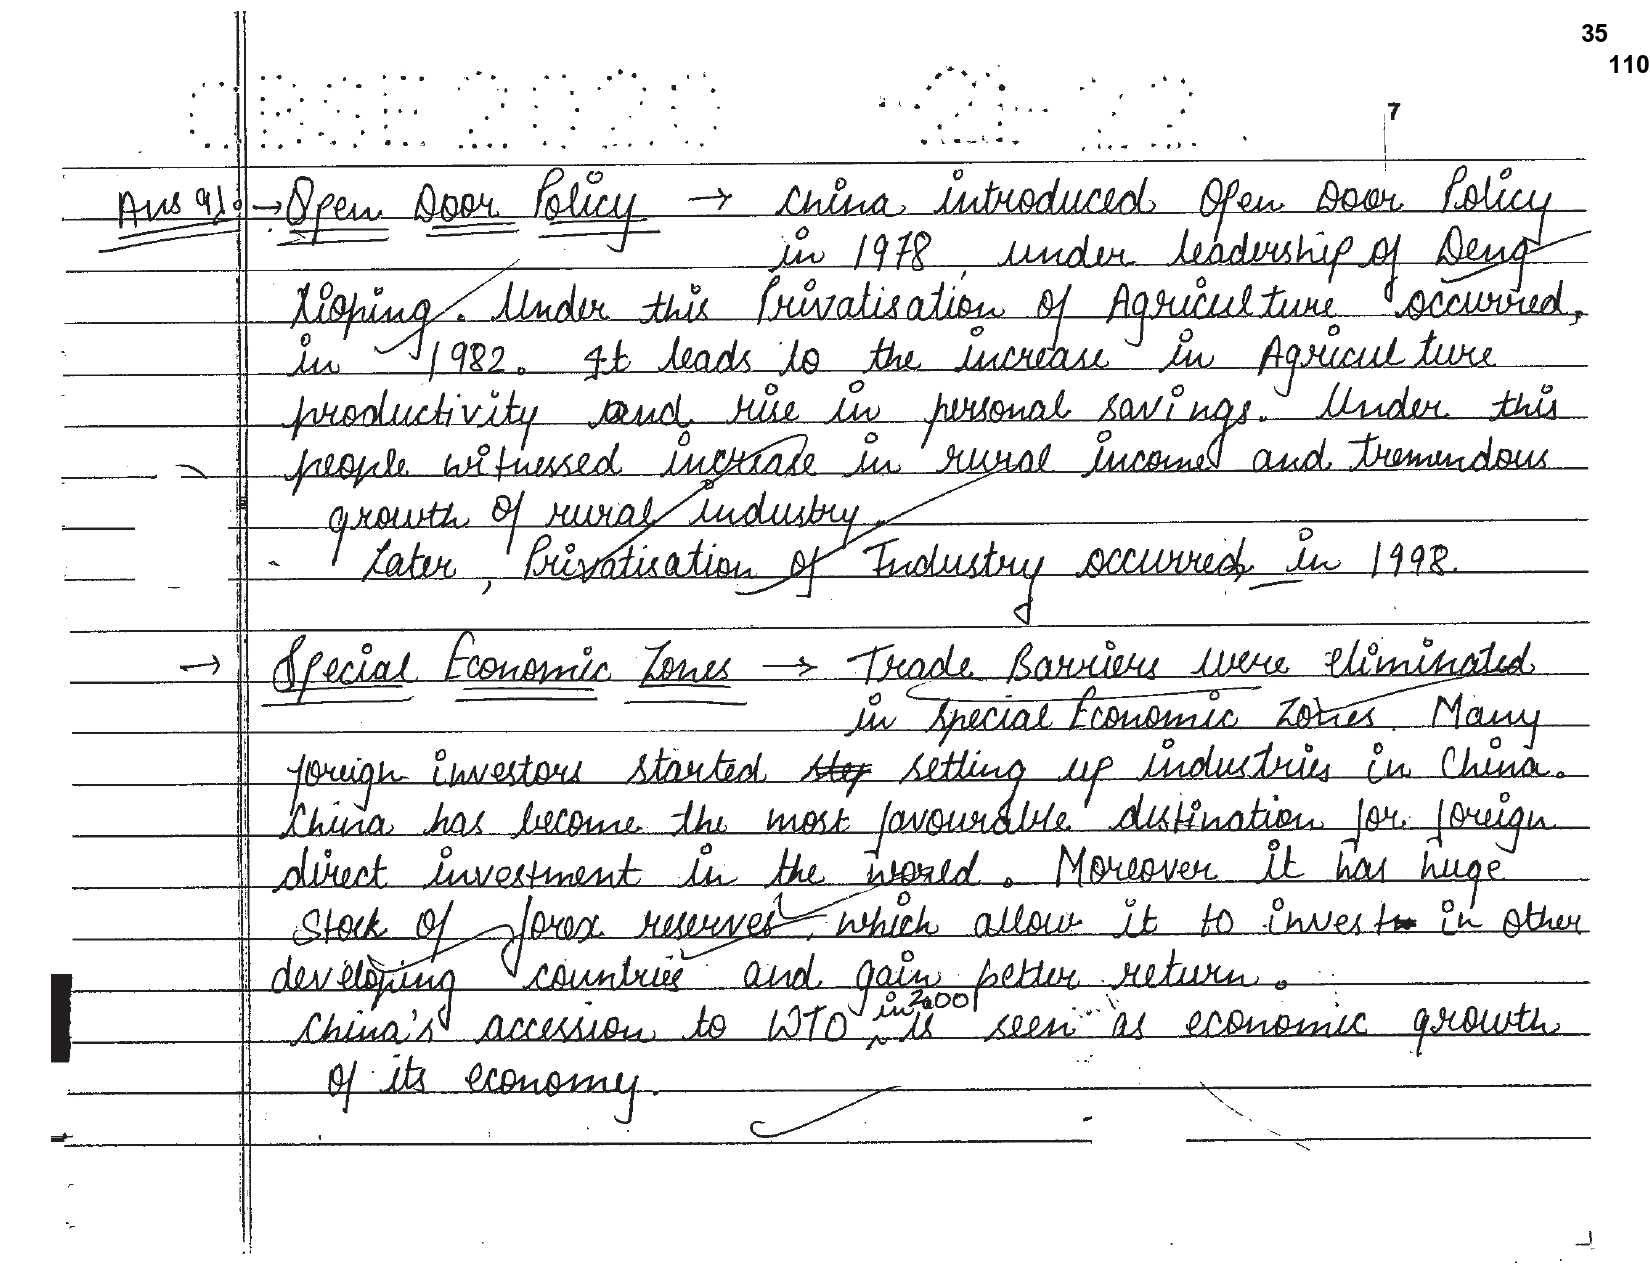 35
110
CBSE 2020
7
Ans 9) → Open Door Policy → China introduced Open Door Policy
in 1978, under leadership of Deng
Xioping. Under this Privatisation of Agriculture occurred,
in 1982. It leads to the increase in Agriculture
productivity and rise in personal savings. Under this
people witnessed increase in rural income and tremendous
growth of rural industry.
Later, Privatisation of Industry occurred in 1998.
→ Special Economic Zones → Trade Barriers were eliminated
in Special Economic Zones. Many
foreign investors started setting up industries in China.
China has become the most favourable distination for foreign
direct investment in the world. Moreover it has huge
stock of forex reserves, which allow it to invest in other
developing countries and gain better return.
China's accession to WTO in 2001 is seen as economic growth
of its economy.